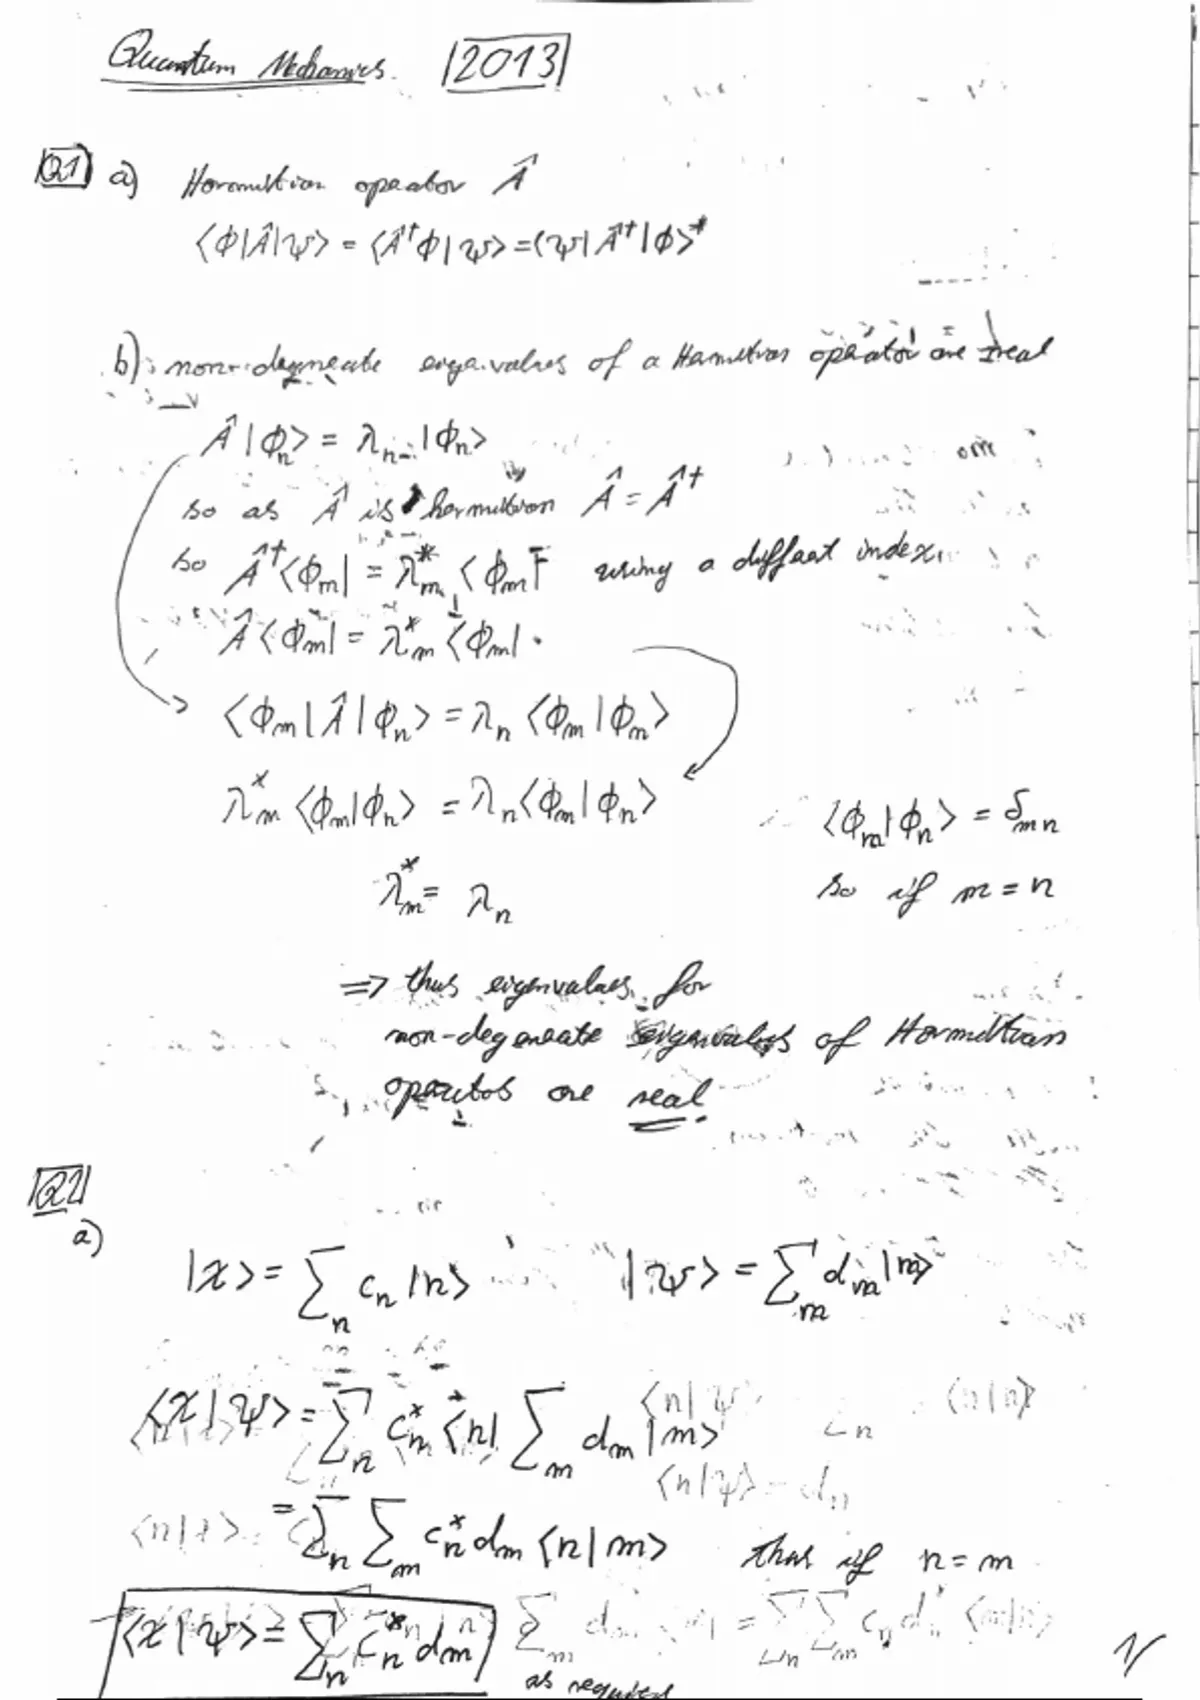 Quantum Mechanics. 2013
Q1 a) Hermitian operator Â
⟨ϕ|Â|ψ⟩ = ⟨Â†ϕ|ψ⟩ = ⟨ψ|Â†|ϕ⟩*
b) non-degenerate eigenvalues of a Hermitian operator are real
Â|ϕn⟩ = λn |ϕn⟩
so as Â is hermitian Â = Â†
so Â†⟨ϕm| = λm* ⟨ϕm| using a different index.
Â⟨ϕm| = λm* ⟨ϕm|.
⟨ϕm|Â|ϕn⟩ = λn ⟨ϕm|ϕn⟩
λm* ⟨ϕm|ϕn⟩ = λn⟨ϕm|ϕn⟩ ⟨ϕm|ϕn⟩ = δmn
λm* = λn so if m = n
⇒ thus eigenvalues for
non-degenerate eigenvalues of Hermitian
operators are real.
Q2
a)
|χ⟩ = ∑n cn |n⟩ |ψ⟩ = ∑m dm|m⟩
⟨χ|ψ⟩ = ∑n cm* ⟨n| ∑m dm |m⟩
= ∑n ∑m cn* dm ⟨n|m⟩ thus if n = m
⟨χ|ψ⟩ = ∑n cn* dm
as required